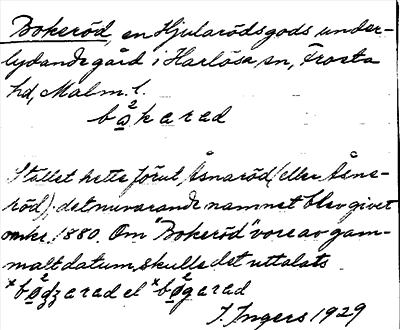 Bokeröd, en Hjularödsgods under-
lydande gård i Harlösa sn, Frosta
hd, Malm. l.
bokarad
Stället hette förut Åsnaröd (eller Åsne-
röd); det nuvarande namnet blev givet
omkr. 1880. Om "Bokeröd" vore av gam-
malt datum, skulle det uttalats
*bogarad el *bogarad
I. Ingers 1929